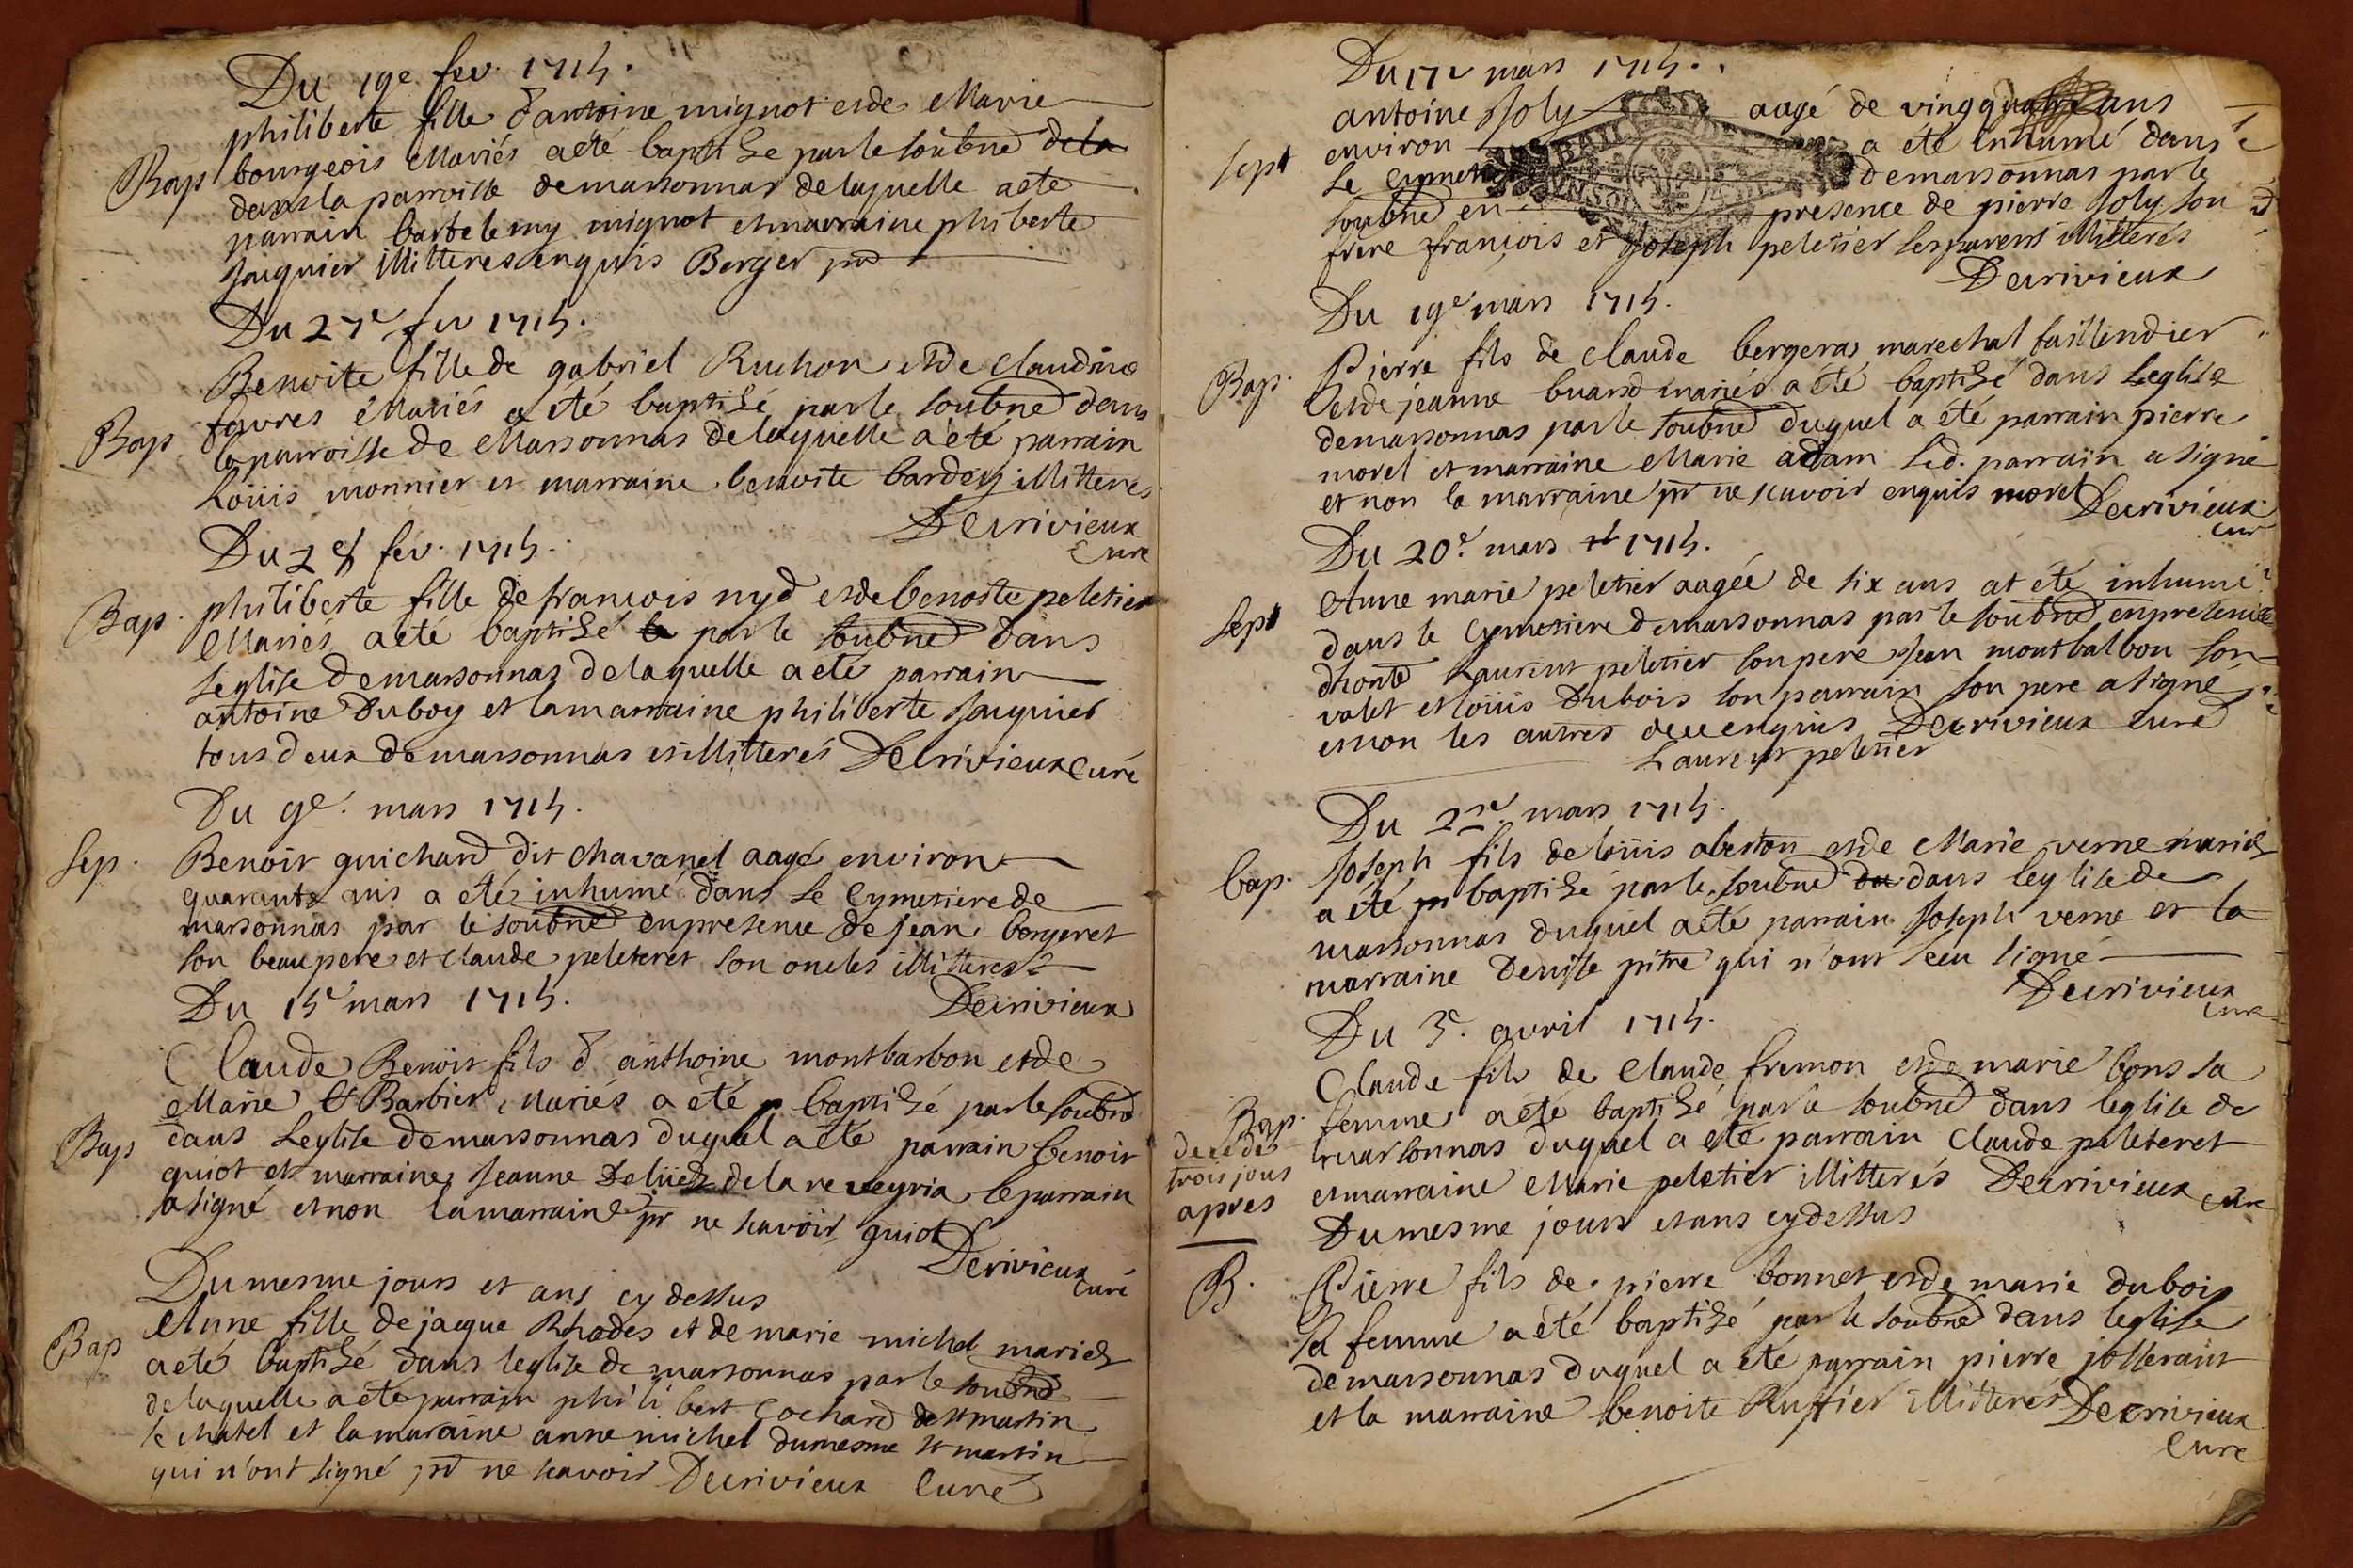 Du 19e fev. 1715.
philiberte fille d'antoine mignot et de Marie
bourgeois Mariés a eté baptisé par le soubné de la
Bap
dans la parroisse de marsonnas de laquelle a eté
parrain bartelemy mignot et marraine philberte
Jaiquier illitteres enquis Berger
Du 27e fev 1715.
Benoite fille de gabriel Ruchon et de Claudine
favres Mariés a été baptisé par le soubné dans
Bap
la parroisse de Marsonnas de laquelle a été parrain
Loüis monnier et marraine benoite bardey illitteres
Decrivieux
Cure
Du 28 fev. 1715.
Bap.
philiberte fille de francois nyd et de benoite peletier
Mariés a eté baptisé par le soubné dans
l'eglise de marsonnas de laquelle a eté parrain
antoine Duboy et la marraine philiberte Jaiquier
tous deux de marsonnas illitterés Decrivieux Curé
Du 9e. mars 1715.
Sep.
Benoit guichard dit Chavanel aagé environ
quarante ans a eté inhumé dans le Cymetiere de
marsonnas par le soubné en presence de Jean bergeret
son beaupere et Claude peleteret son oncles illitteres
Decrivieux
Du 15e mars 1715.
Claude Benoit fils d'anthoine montbarbon et de
Marie Barbier Mariés a été baptisé par le soubné
Bap
dans l'eglise de marsonnas duquel a eté parrain benoit
guiot et marraine Jeanne de la reveyria le parrain
a signé et non la marraine pr ne scavoir guiot
Decrivieux
Curé
Du mesme jours et ans cy dessus
Bap
Anne fille de jacque Rhodes et de marie michel mariés
a etés baptisé dans l'eglise de marsonnas par le soubné
de laquelle a eté parrain philibert Cochard de st martin
le chatel et la maraine anne michel du mesme st martin
qui n'ont signé pr ne scavoir Decrivieux Curé
Du 17e mars 1715.
antoine Joly aagé de vingqquatre ans
sept
environ a été inhumé dans
le Cymetiere de marsonnas par le
soubné en presence de pierre Joly son
frere francois et Joseph peletier ses parens illitterés
Decrivieux
Du 19e mars 1715.
Bap.
Pierre fils de Claude bergeras marechal taillendier
et de jeanne buard mariés a été baptisé dans l'eglise
de marsonnas par le soubné duquel a été parrain pierre
morel et marraine Marie adam led. parrain a signé
et non la marraine pr ne scavoir enquis morel Decrivieux
cur
Du 20e mars 1715.
sept
Anne marie peletier aagée de six ans at été inhumé
dans le Cymetiere de marsonnas par le soubné en presence
d'honte Laurent peletier son pere Jean montbalbon son
valet et loüis Dubois son parrain son pere a signé
et non les autres de ce enquis Decrivieux Curé
Laurent peletier
Du mars 1715.
bap.
Joseph fils de loüis aberton et de Marie verne mariés
a été baptisé par le soubné dans l'eglise de
marsonnas duquel a été parrain Joseph verne et la
marraine Denise pitre qui n'ont sceu signé
Decrivieux
Cure
Du 3e. avril 1715.
Claude fils de Claude fremon et de marie bons sa
Bap.
femme a eté baptisé par le soubné dans l'eglise de
decedé
marsonnas duquel a eté parrain Claude peleteret
trois jours
et marraine Marie peletier illitterés Decrivieux Cure
apres
Du mesme jours et ans cy dessus
B.
Pierre fils de pierre bonnet et de marie dubois
sa femme a été baptisé par le soubné dans l'eglise
de marsonnas duquel a été parrain pierre josserant
et la marraine benoite Ruffier illitterés Decrivieux
Cure